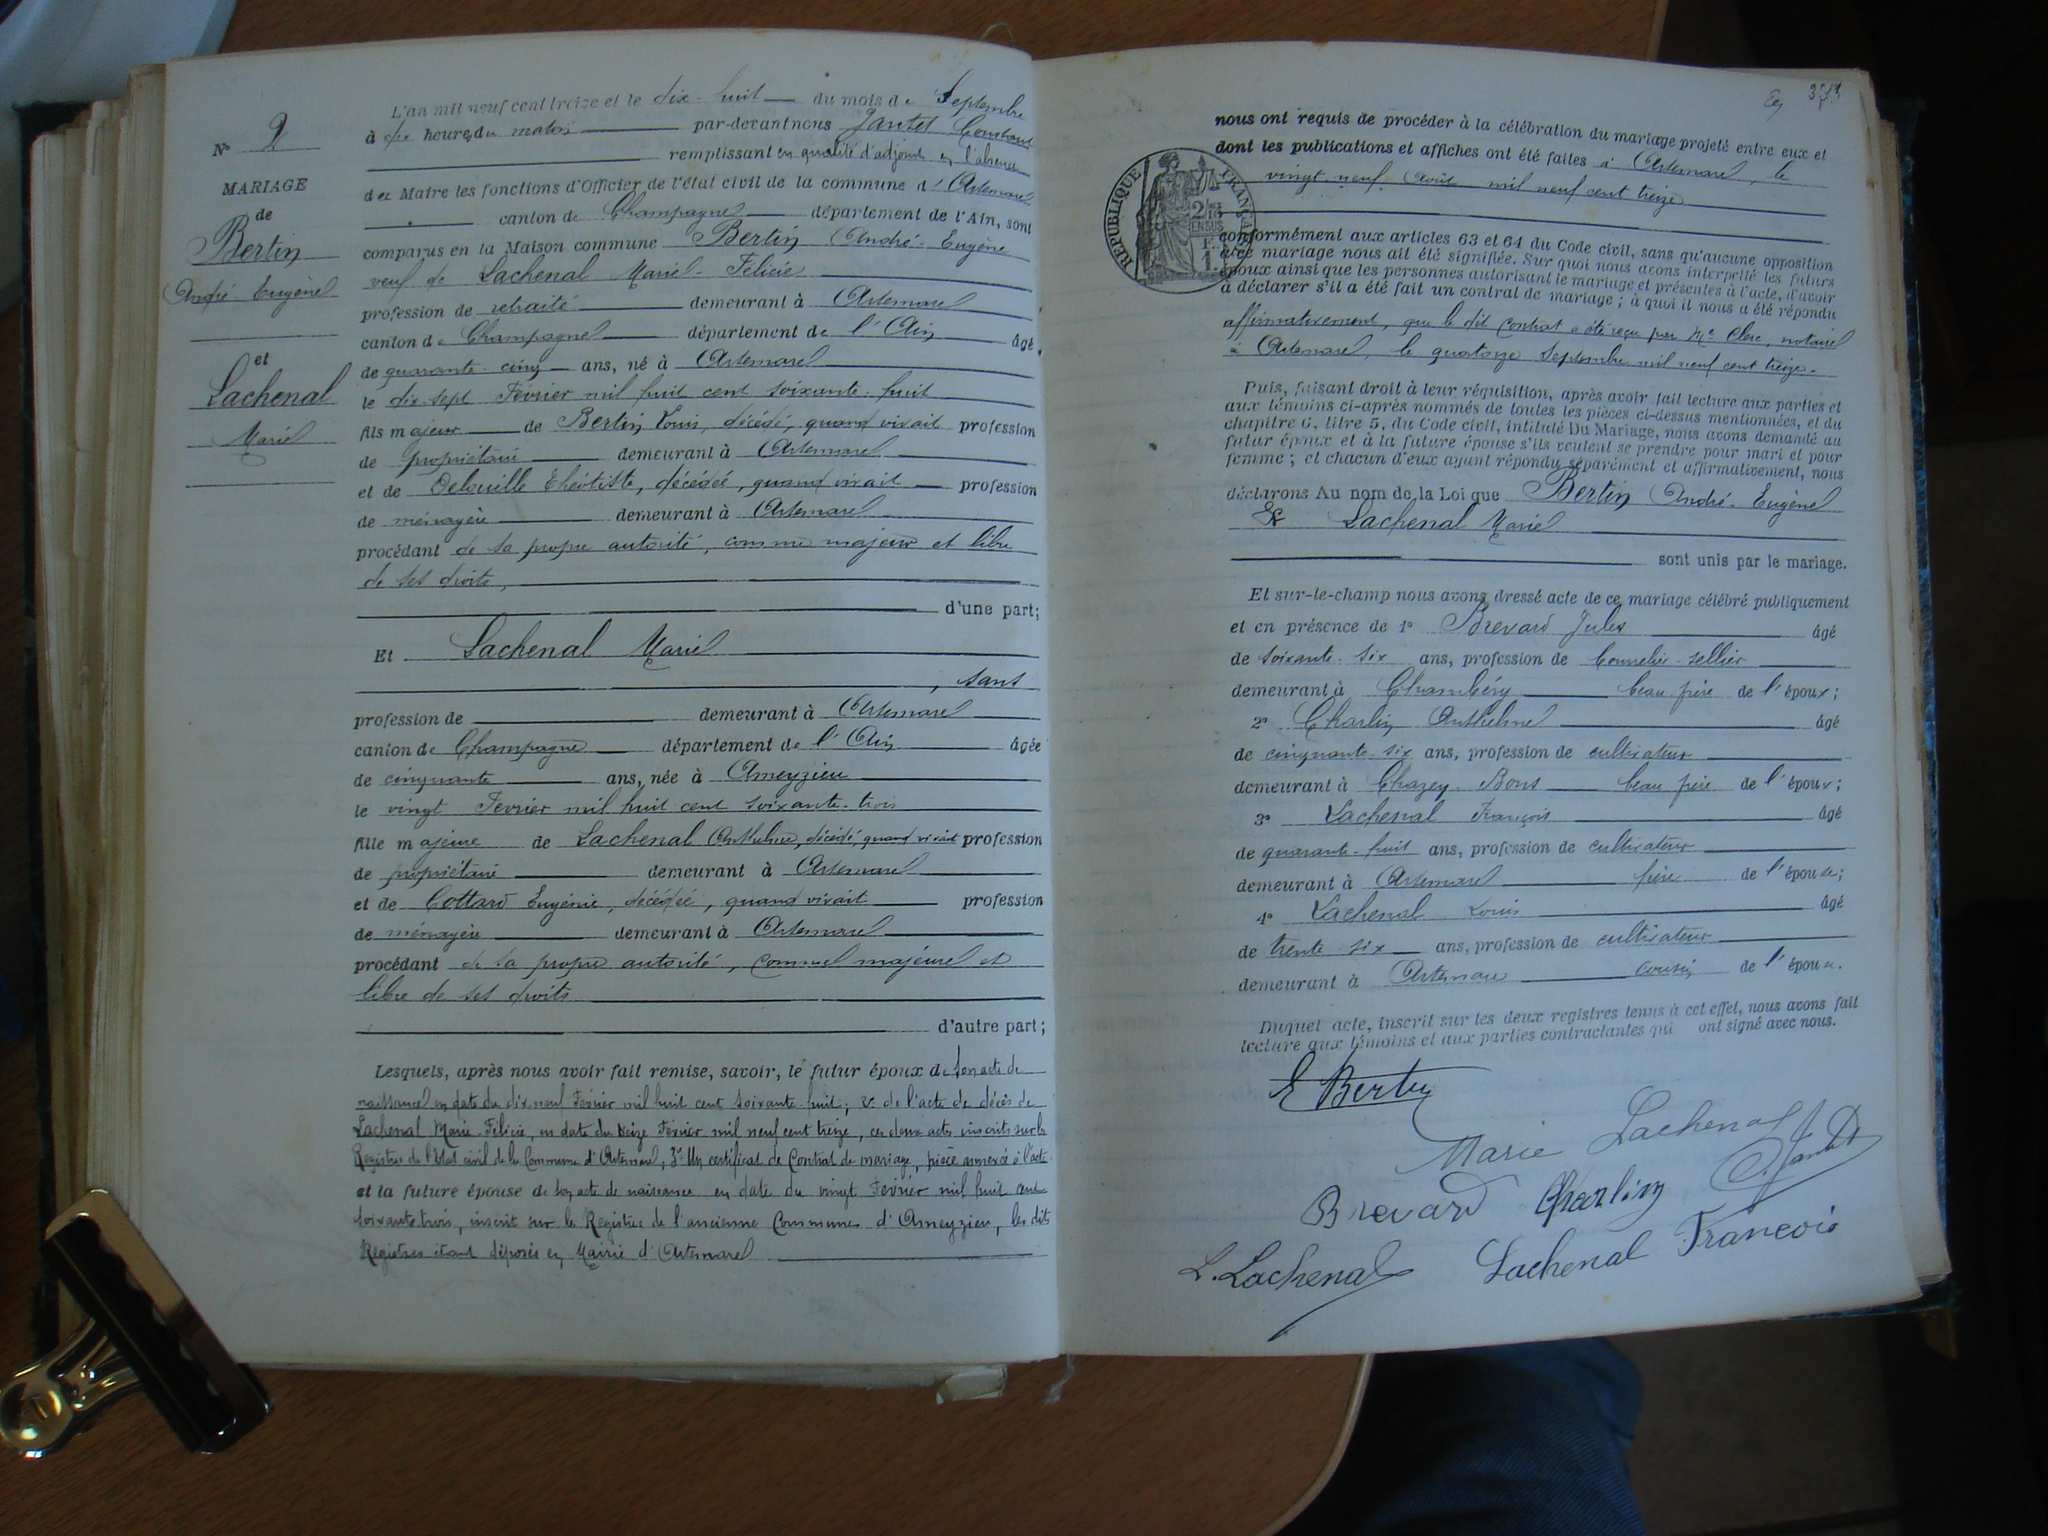 N° 9
MARIAGE
de
Bertin
André Eugène
et
Lachenal
Marie
L'an mil neuf cent treize et le dix-huit du mois de Septembre
à dix heures du matin par-devant nous Jantet
remplissant en qualité d'adjoint en l'absence
du Maire les fonctions d'Officier de l'état civil de la commune d'Artemare
canton de Champagne département de l'Ain, sont
comparus en la Maison commune Bertin André-Eugène
veuf de Lachenal Marie-Félicie
profession de retraité demeurant à Artemare
canton de Champagne département de l'Ain âgé
de quarante-cinq ans, né à Artemare
le dix-sept Février mil huit cent soixante-huit
fils majeur de Bertin Louis, décédé, quand vivait profession
de propriétaire demeurant à Artemare
et de décédée, quand vivait profession
de ménagère demeurant à Artemare
procédant de sa propre autorité, comme majeur et libre
de ses droits,
d'une part;
Et Lachenal Marie
, sans
profession de demeurant à Artemare
canton de Champagne département de l'Ain âgée
de cinquante ans, née à Ameyzieu
le vingt Février mil huit cent soixante-trois
fille majeure de Lachenal Anthelme, décédé, quand vivait profession
de propriétaire demeurant à Artemare
et de Cottard Eugénie, décédée, quand vivait profession
de ménagère demeurant à Artemare
procédant de sa propre autorité, comme majeure et
libre de ses droits
d'autre part;
Lesquels, après nous avoir fait remise, savoir, le futur époux de son acte de
naissance en date du dix neuf Février mil huit cent soixante-huit; 2° de l'acte de décès de
Lachenal Marie-Félicie, en date du treize Février mil neuf cent treize, ces deux actes inscrits sur les
Registres de l'état civil de la Commune d'Artemare; 3° Un certificat de Contrat de mariage, pièce annexée à l'acte
et la future épouse de son acte de naissance en date du vingt Février mil huit cent
soixante trois, inscrit sur le Registre de l'ancienne Commune d'Ameyzieu, les dits
Registres étant déposés en Mairie d'Artemare
nous ont requis de procéder à la célébration du mariage projeté entre eux et
dont les publications et affiches ont été faites à Artemare, le
vingt-neuf Août mil neuf cent treize
RÉPUBLIQUE FRANÇAISE
conformément aux articles 63 et 64 du Code civil, sans qu'aucune opposition
à ce mariage nous ait été signifiée. Sur quoi nous avons interpellé les futurs
époux ainsi que les personnes autorisant le mariage et présentes à l'acte, d'avoir
à déclarer s'il a été fait un contrat de mariage; à quoi il nous a été répondu
affirmativement, que le dit contrat a été reçu par Me Clerc, notaire
à Artemare, le quatorze Septembre mil neuf cent treize.
Puis, faisant droit à leur réquisition, après avoir fait lecture aux parties et
aux témoins ci-après nommés de toutes les pièces ci-dessus mentionnées, et du
chapitre 6, titre 5, du Code civil, intitulé Du Mariage, nous avons demandé au
futur époux et à la future épouse s'ils veulent se prendre pour mari et pour
femme; et chacun d'eux ayant répondu séparément et affirmativement, nous
déclarons Au nom de la Loi que Bertin André-Eugène
Et Lachenal Marie
sont unis par le mariage.
Et sur-le-champ nous avons dressé acte de ce mariage célébré publiquement
et en présence de 1° Brevard Jules âgé
de soixante-six ans, profession de bourrelier-sellier
demeurant à Chambéry beau-frère de l'époux;
2° Charlin Anthelme âgé
de cinquante-six ans, profession de cultivateur
demeurant à Chazey-Bons beau-frère de l'époux;
3° Lachenal François âgé
de quarante-huit ans, profession de cultivateur
demeurant à Artemare frère de l'épouse;
4° Lachenal Louis âgé
de trente-six ans, profession de cultivateur
demeurant à Artemare cousin de l'épouse.
Duquel acte, inscrit sur les deux registres tenus à cet effet, nous avons fait
lecture aux témoins et aux parties contractantes qui ont signé avec nous.
E Bertin
Marie Lachenal
Jantet
Brevard Charlin
L. Lachenal Lachenal François